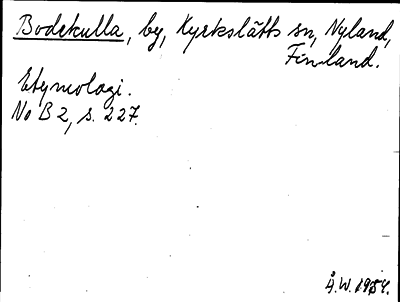 Bodekulla, by, Kyrkslätts sn, Nyland,
Finland.
Etymologi.
No B 2, s. 227.
Å.W.